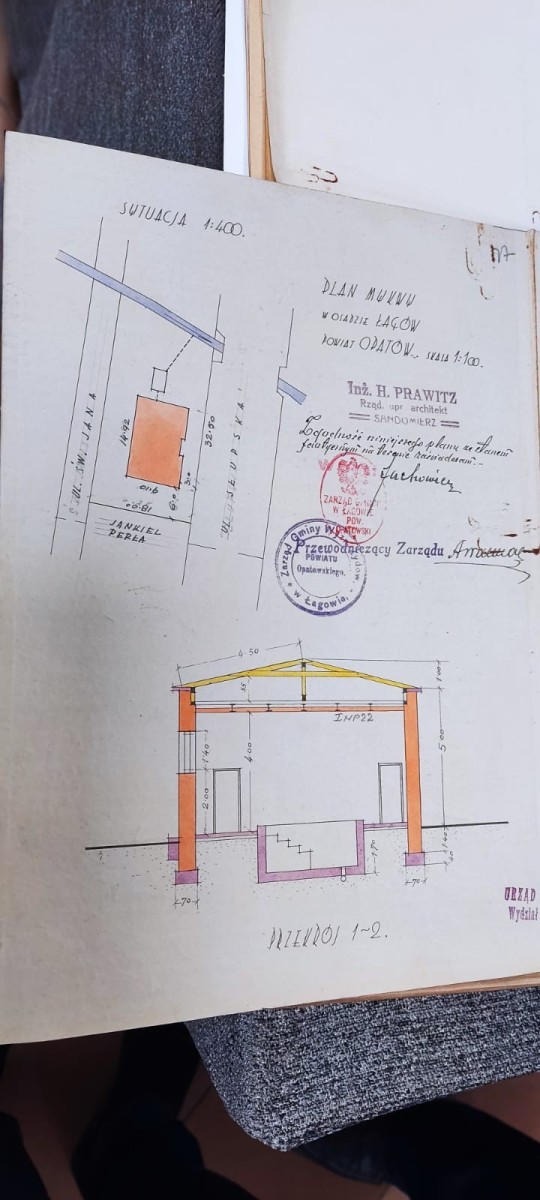 SYTUACJA 1:400.
PLAN MYKWY
W OSADZIE ŁAGÓW
POWIAT OPATÓW. SKALA 1:100.
Inż. H. PRAWITZ
Rząd. upr. architekt
SANDOMIERZ
Zgodność niniejszego planu ze stanem
faktycznym na terenie zaświadczam.
ZARZĄD GMINY
W ŁAGOWIE
POW.
OPATOWSKI
Zarząd Gminy Wyzn. Żydow.
POWIATU
Opatowskiego.
w Łagowie.
Przewodniczący Zarządu
UL. ŚW. JANA
14.92
32.50
UL. SŁUPSKA
3.10
JANKIEL
PERŁA
4.50
1.00
55
INP22
4.00
5.00
1.40
2.00
1.40
40
70
70
PRZEKRÓJ 1~2.
URZĄD
Wydział